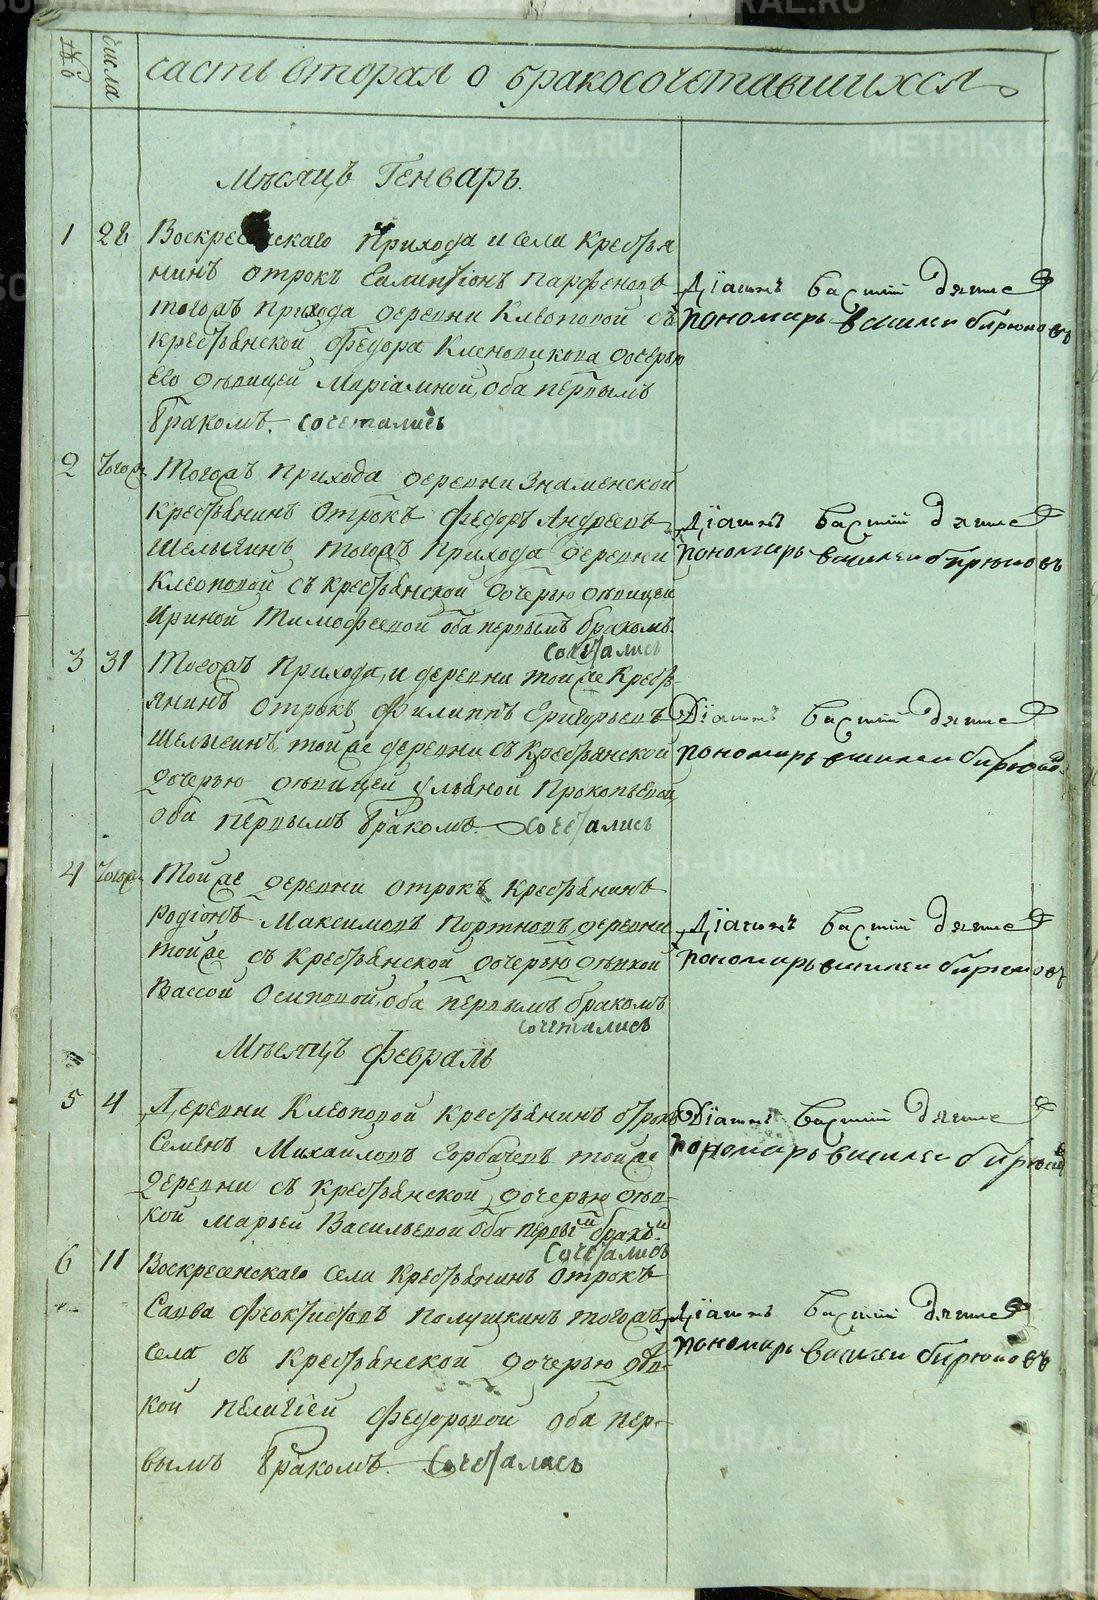 №
числа
часть вторая о бракосочетавшихся
Мѣсяцъ Генварь.
1 28 Воскресенскаго прихода и села Кресть‍я
нинъ отрокъ Парфеновъ
тогожъ прихода деревни Клеопопой съ
крестьянской Федора Клеопикова дочерью
его дѣвицей Маріамной, оба первымъ
бракомъ. сочетались
Діаконъ Василій
пономарь василеи бирюковъ
2 Тогож Тогожъ прихода деревни Знаменской
Крестьянинъ отрокъ Федоръ Андреевъ
Шелысинъ тогожъ прихода деревни
Клеопопой съ крестьянской дочерью дѣвицей
Ириной Тимофеевой оба первымъ бракомъ.
сочетались
Діаконъ Василій
пономарь василеи бирюковъ
3 31 Тогожъ прихода, и деревни тойже Кресть
янинъ отрокъ Филиппъ Григорьевъ
Шелысинъ, тойже деревни съ Крестьянской
дочерью дѣвицей Ульяной Прокопьевой
оба первымъ бракомъ. сочетались
Діаконъ Василій
пономарь василеи бирюков
4 Тогож Тойже деревни отрокъ Крестьянинъ
Родіонъ Максимовъ Портновъ, деревни
тойже съ Крестьянской дочерью дѣвкой
Вассой Осиповой, оба первымъ бракомъ
сочетались
Діаконъ Василій
пономарь василеи бирюковъ
Мѣсяцъ февраль
5 4 Деревни Клеопопой крестьянинъ отрокъ
Семенъ Михайловъ Горбачевъ тойже
деревни съ Крестьянской дочерью дѣв-
кой Марьей Васильевой оба первы бракъ.
сочетались
Діаконъ Василій
пономарь василеи бирюков
6 11 Воскресенскаго села Крестьянинъ отрокъ
Савва Феоктистовъ Полушкинъ тогожъ
села съ Крестьянской дочерью дѣв-
кой Пелагіей Федоровой оба пер-
вымъ бракомъ. Сочетались
Діаконъ Василій
пономарь василеи бирюковъ
METRIKI.GASO-URAL.RU